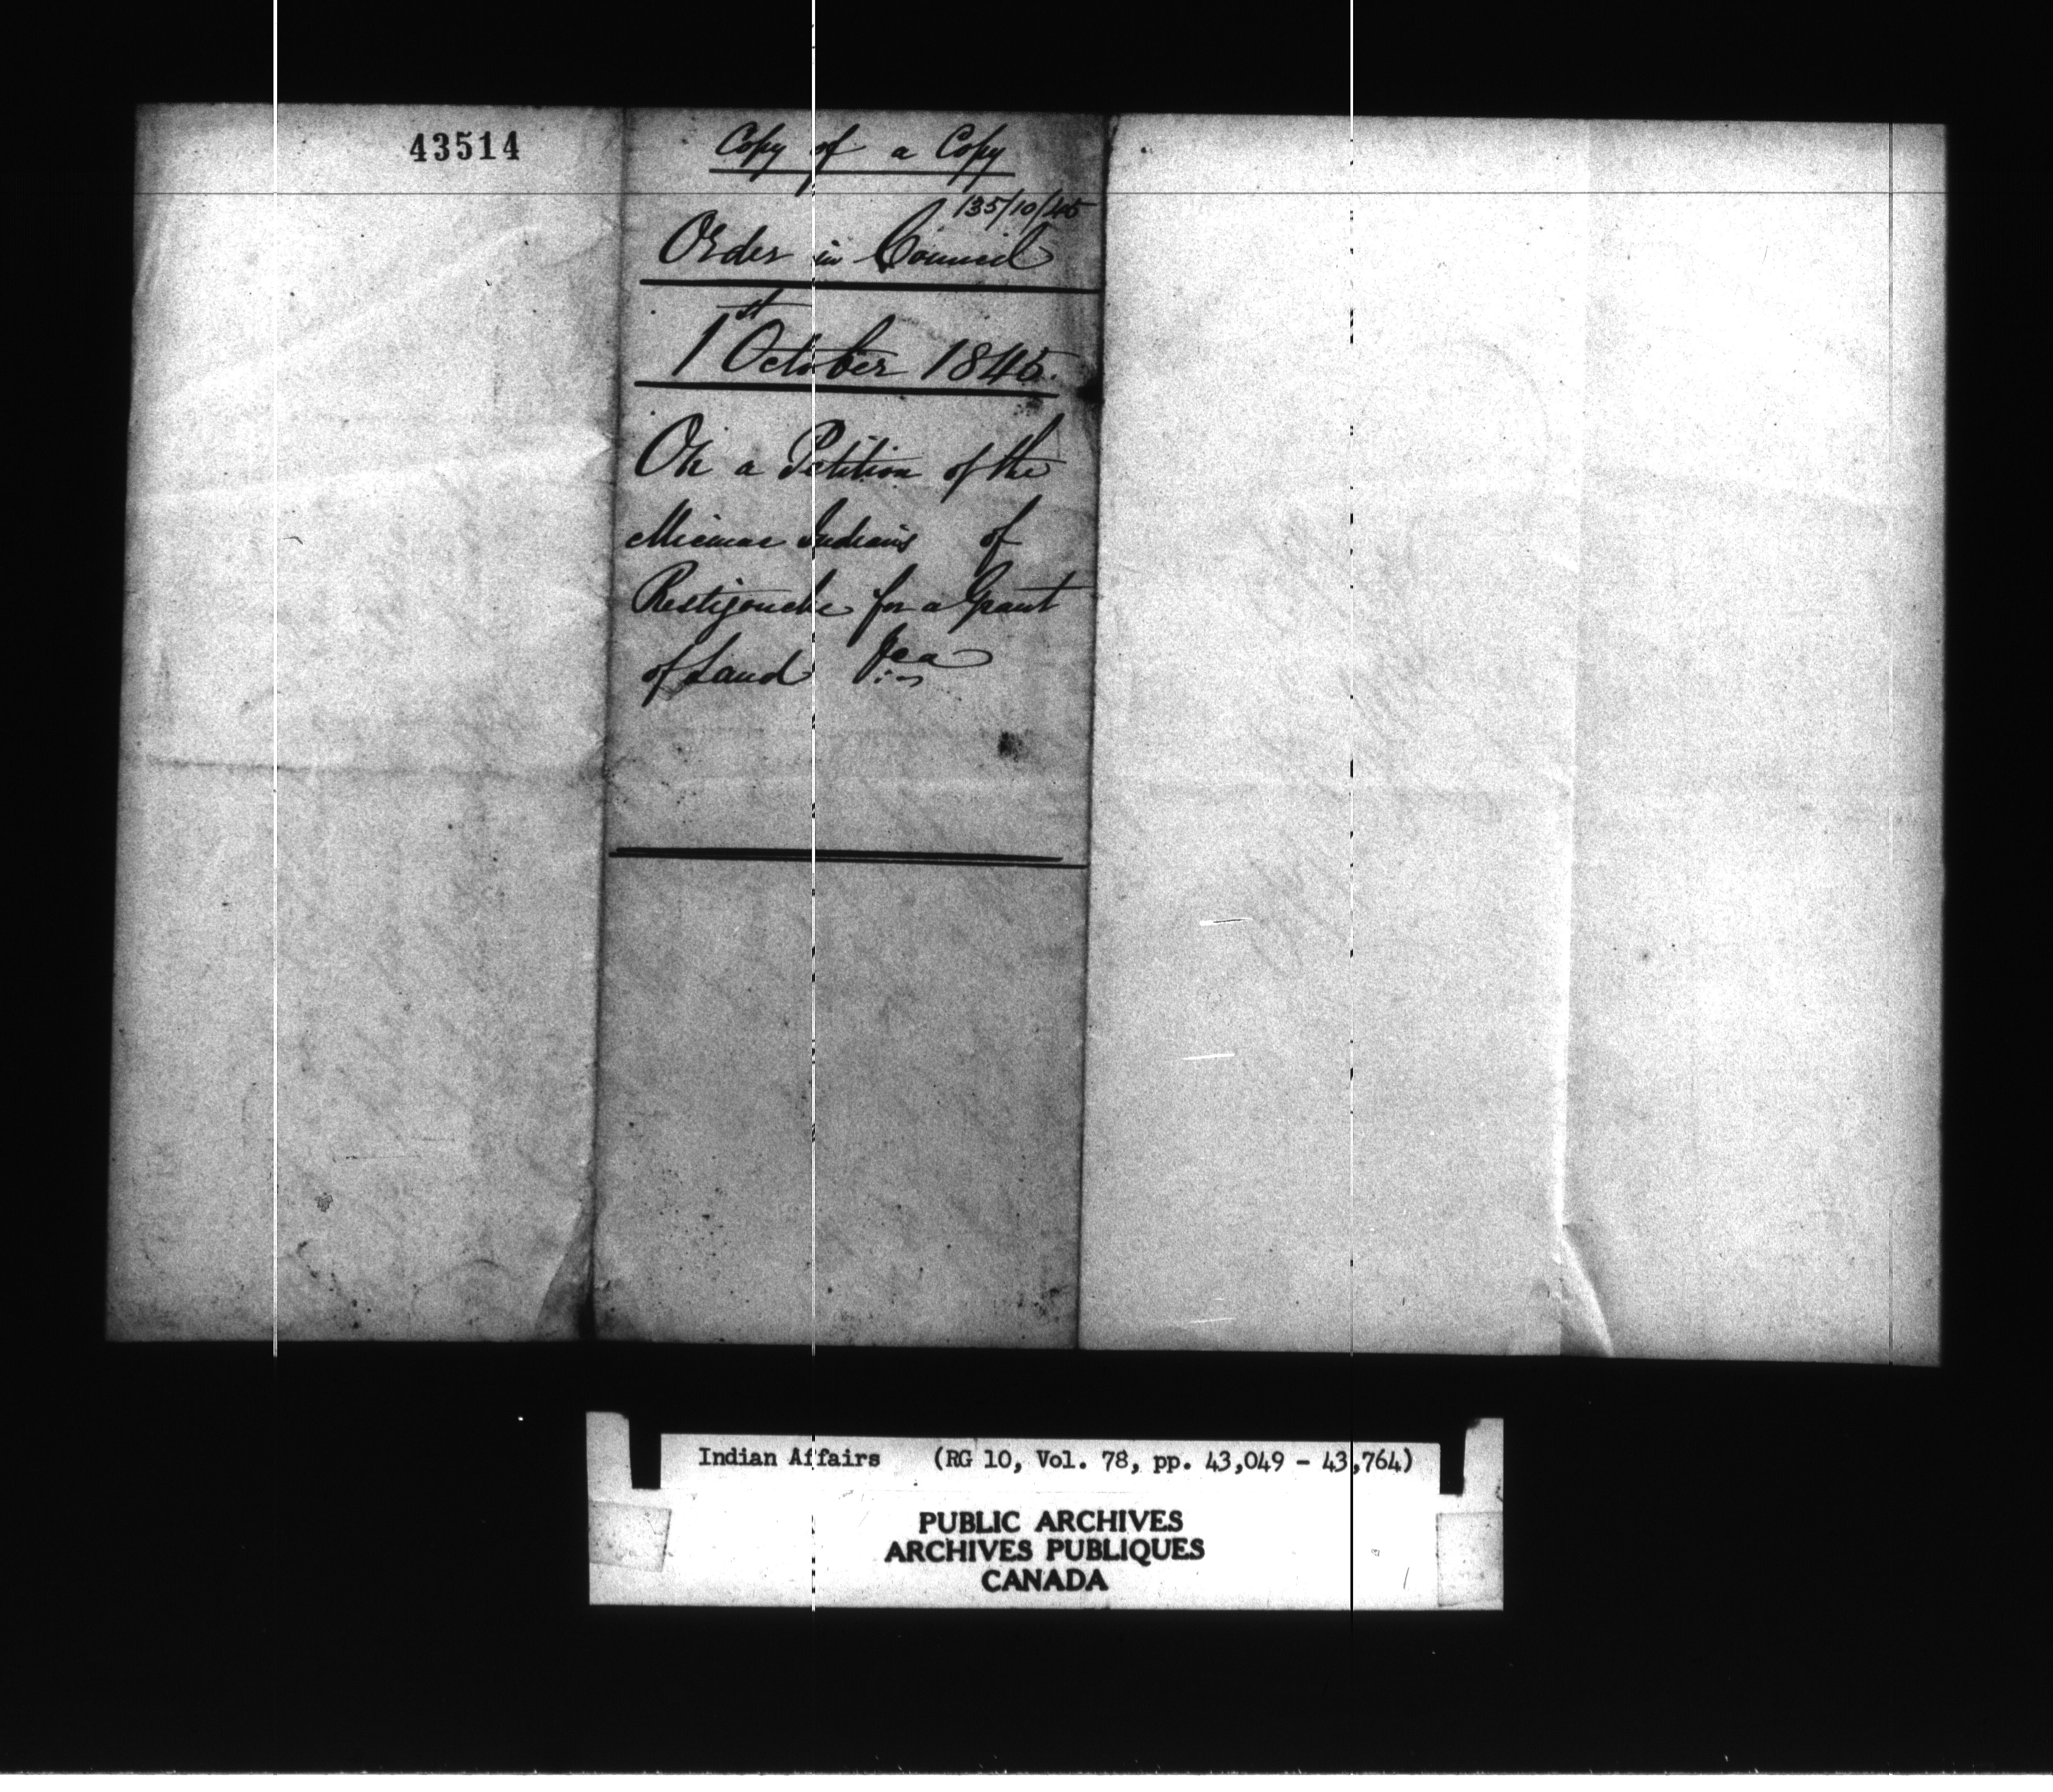 43514
Copy of a Copy
135/10/45
Order in Council
1st October 1845.
On a Petition of the
Micmac Indians of
Restigouche for a Grant
of Land
Indian Affairs (RG 10, Vol. 78, pp. 43,049 - 43,764)
PUBLIC ARCHIVES
ARCHIVES PUBLIQUES
CANADA